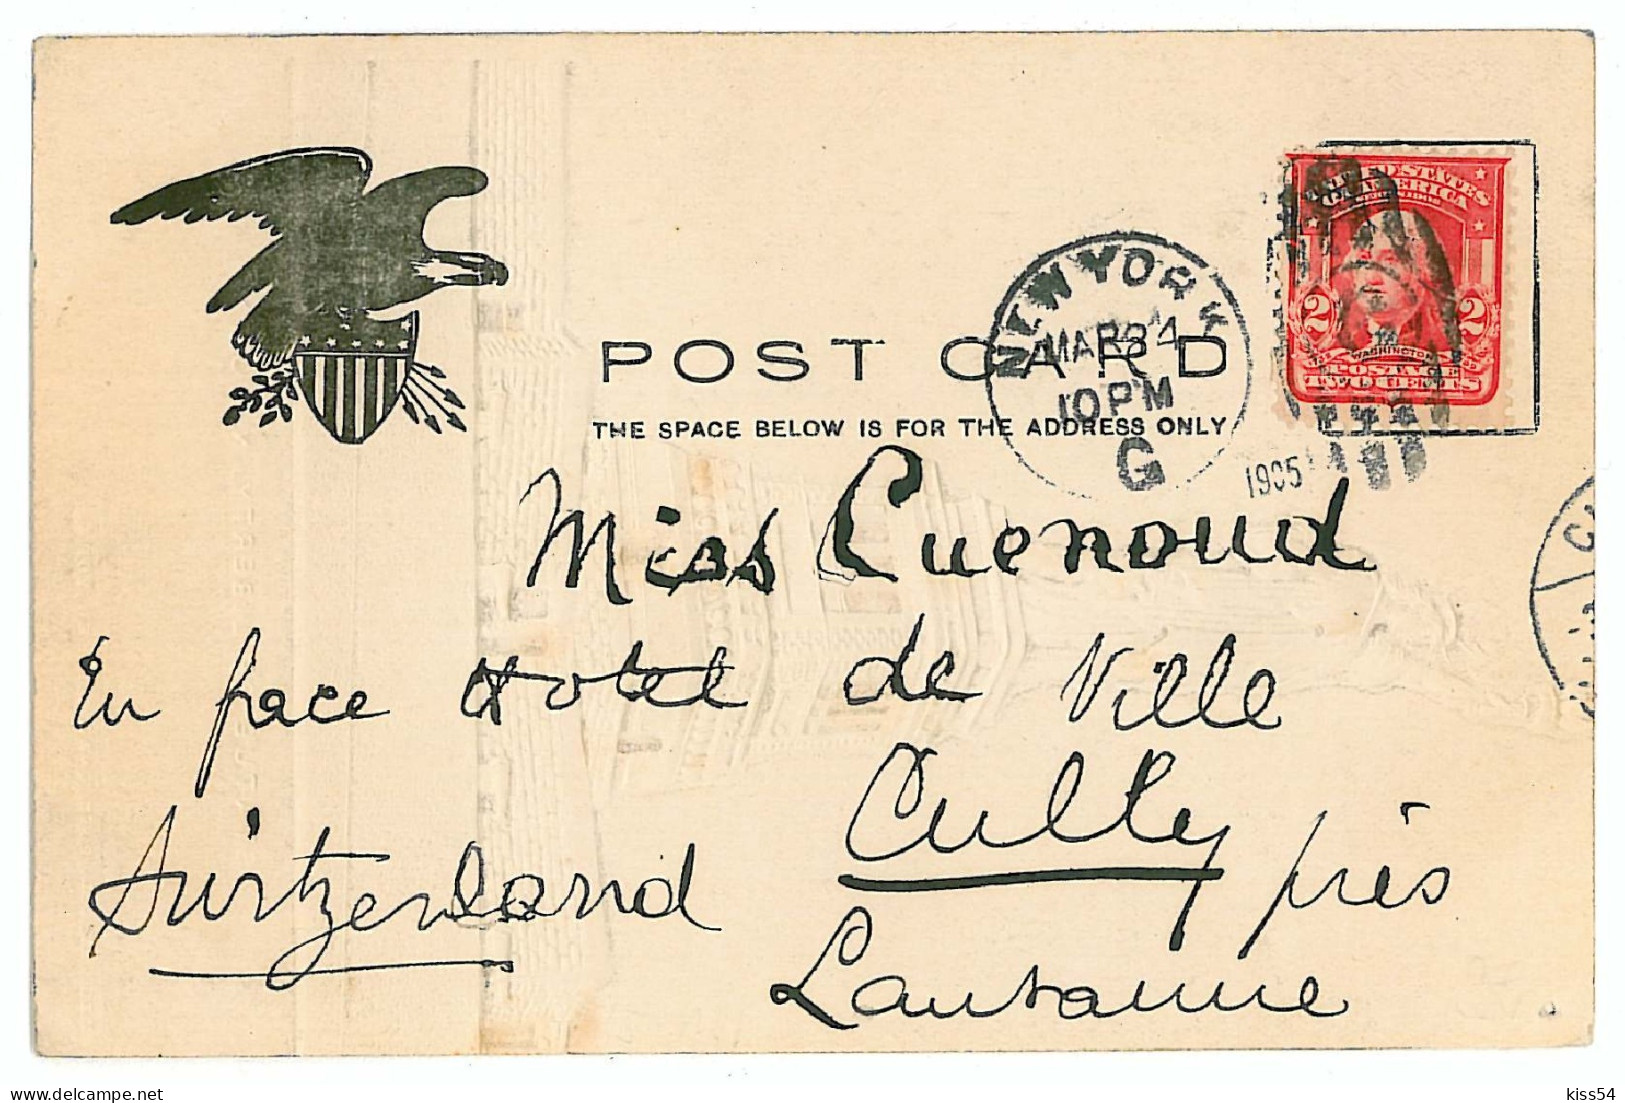 POST CARD
THE SPACE BELOW IS FOR THE ADDRESS ONLY
NEW YORK
MAR 24
10 PM
G
1905
UNITED STATES
OF AMERICA
2 2
WASHINGTON
POSTAGE
TWO CENTS
Miss Cuenoud
En face Hotel de Ville
Cully près
Lausanne
Switzerland
delcampe.net
kiss54